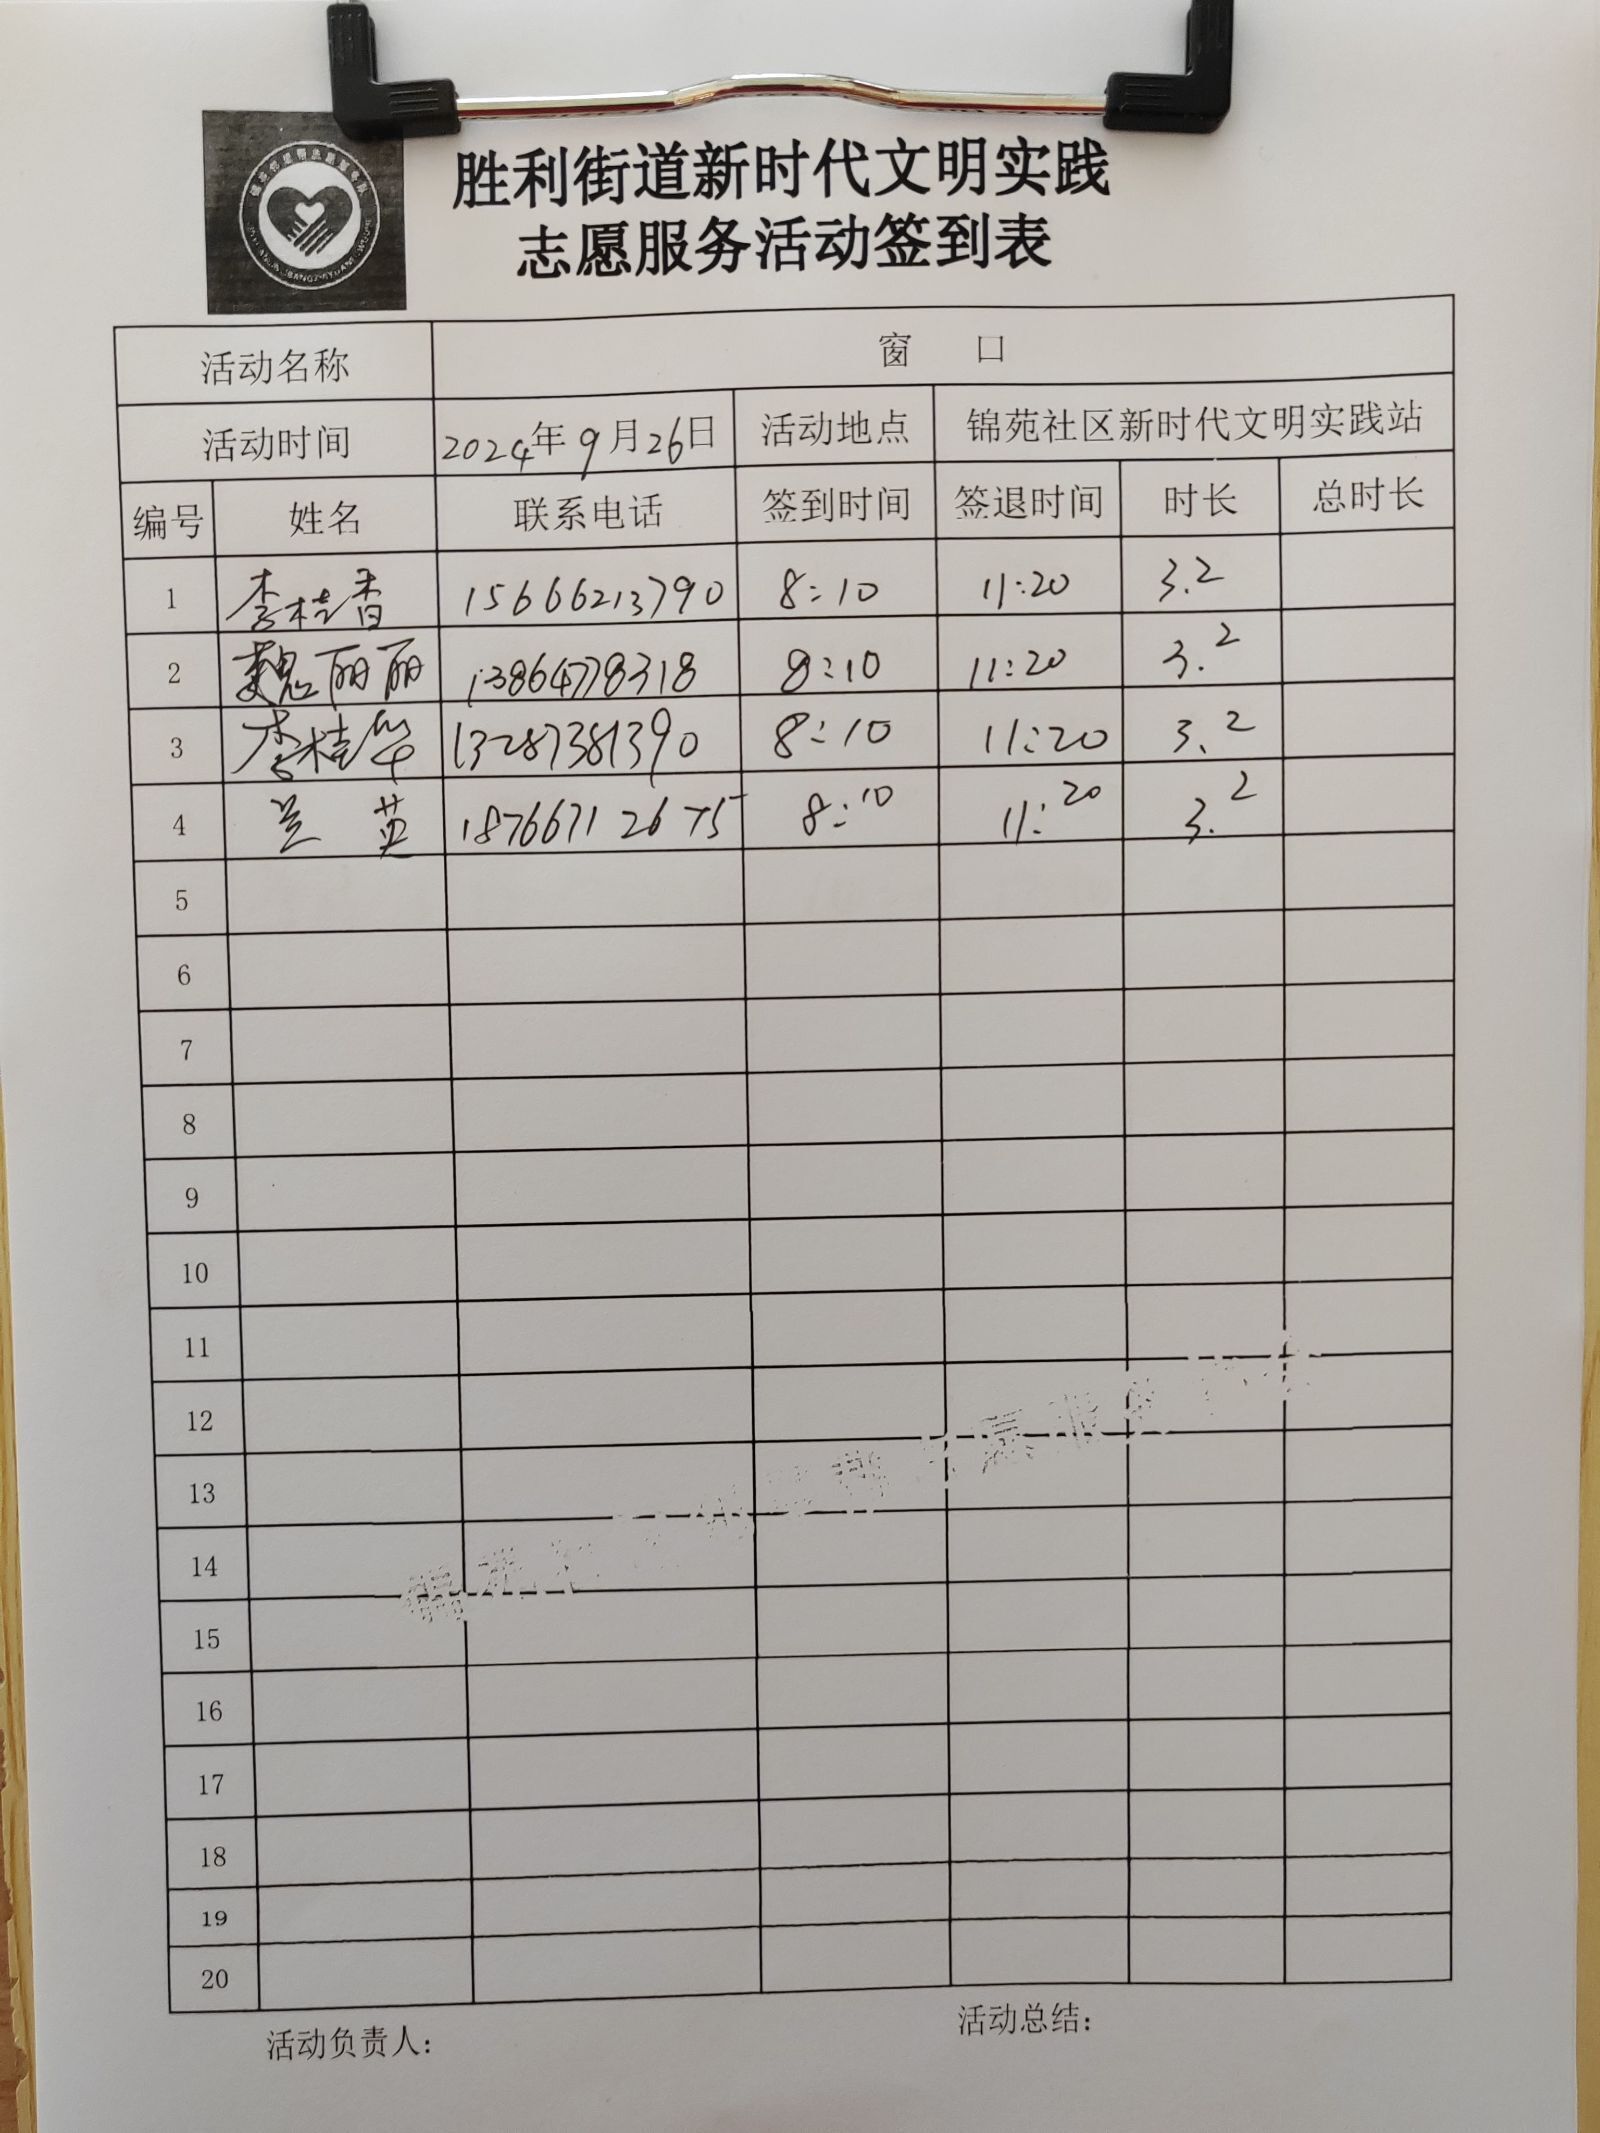 胜利街道新时代文明实践
志愿服务活动签到表
活动名称 窗 口
活动时间 2024年9月26日 活动地点 锦苑社区新时代文明实践站
编号 姓名 联系电话 签到时间 签退时间 时长 总时长
1 李桂香 15666213790 8:10 11:20 3.2
2 魏丽丽 13864778318 8:10 11:20 3.2
3 李桂华 13287381390 8:10 11:20 3.2
4 兰英 18766712675 8:10 11:20 3.2
5
6
7
8
9
10
11
12
13
14
15
16
17
18
19
20
活动负责人: 活动总结: